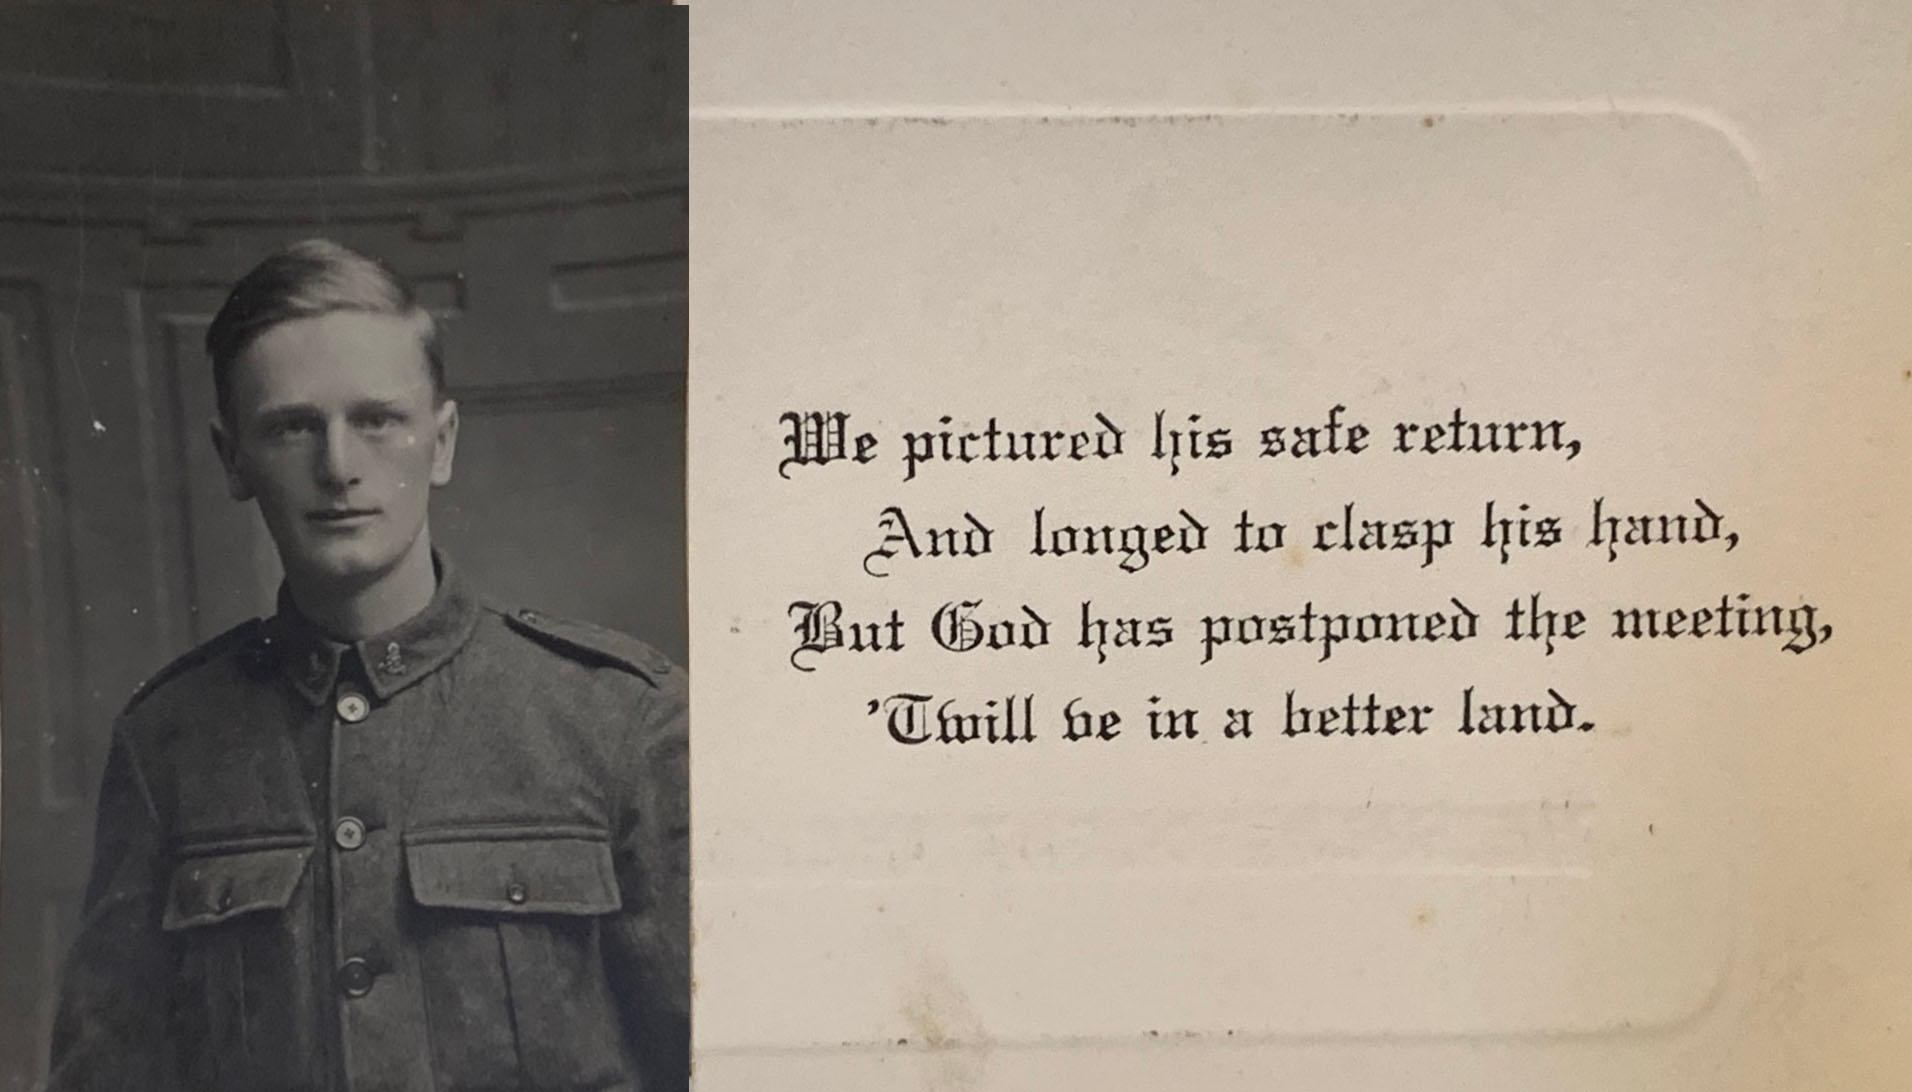 We pictured his safe return,
And longed to clasp his hand,
But God has postponed the meeting,
'Twill be in a better land.